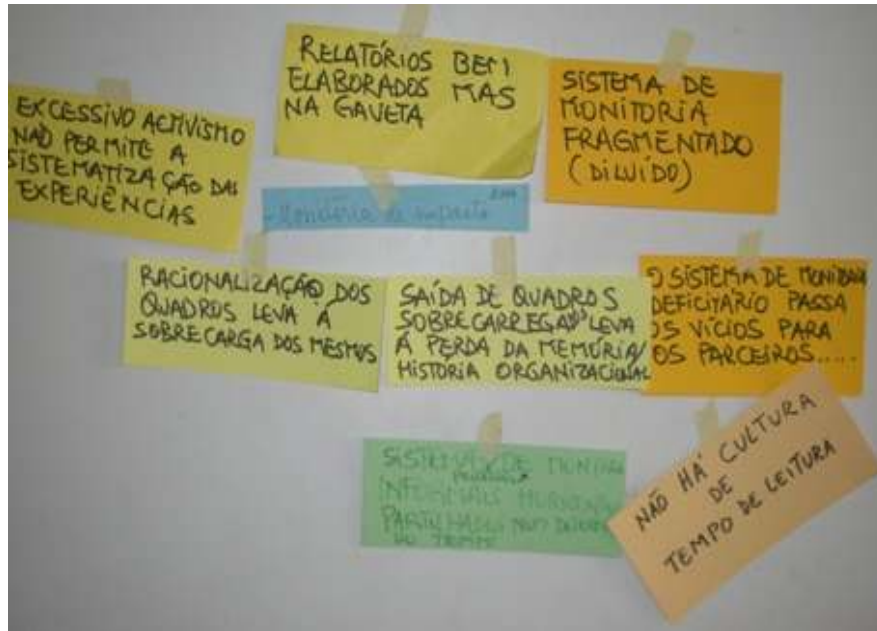 EXCESSIVO ACTIVISMO
NÃO PERMITE A
SISTEMATIZAÇÃO DAS
EXPERIÊNCIAS
RELATÓRIOS BEM
ELABORADOS MAS
NA GAVETA
SISTEMA DE
MONITORIA
FRAGMENTADO
(DILUÍDO)
Monitoria de impacto
RACIONALIZAÇÃO DOS
QUADROS LEVA Á
SOBRECARGA DOS MESMOS
SAÍDA DE QUADROS
SOBRECARREGADOS LEVA
Á PERDA DA MEMÓRIA/
HISTORIA ORGANIZACIONAL
O SISTEMA DE MONITORIA
DEFICITÁRIO PASSA
OS VÍCIOS PARA
OS PARCEIROS.....
SISTEMAS DE
INFORMAIS
PARTILHADOS
DO TEMPO
NÃO HÁ CULTURA
DE
TEMPO DE LEITURA